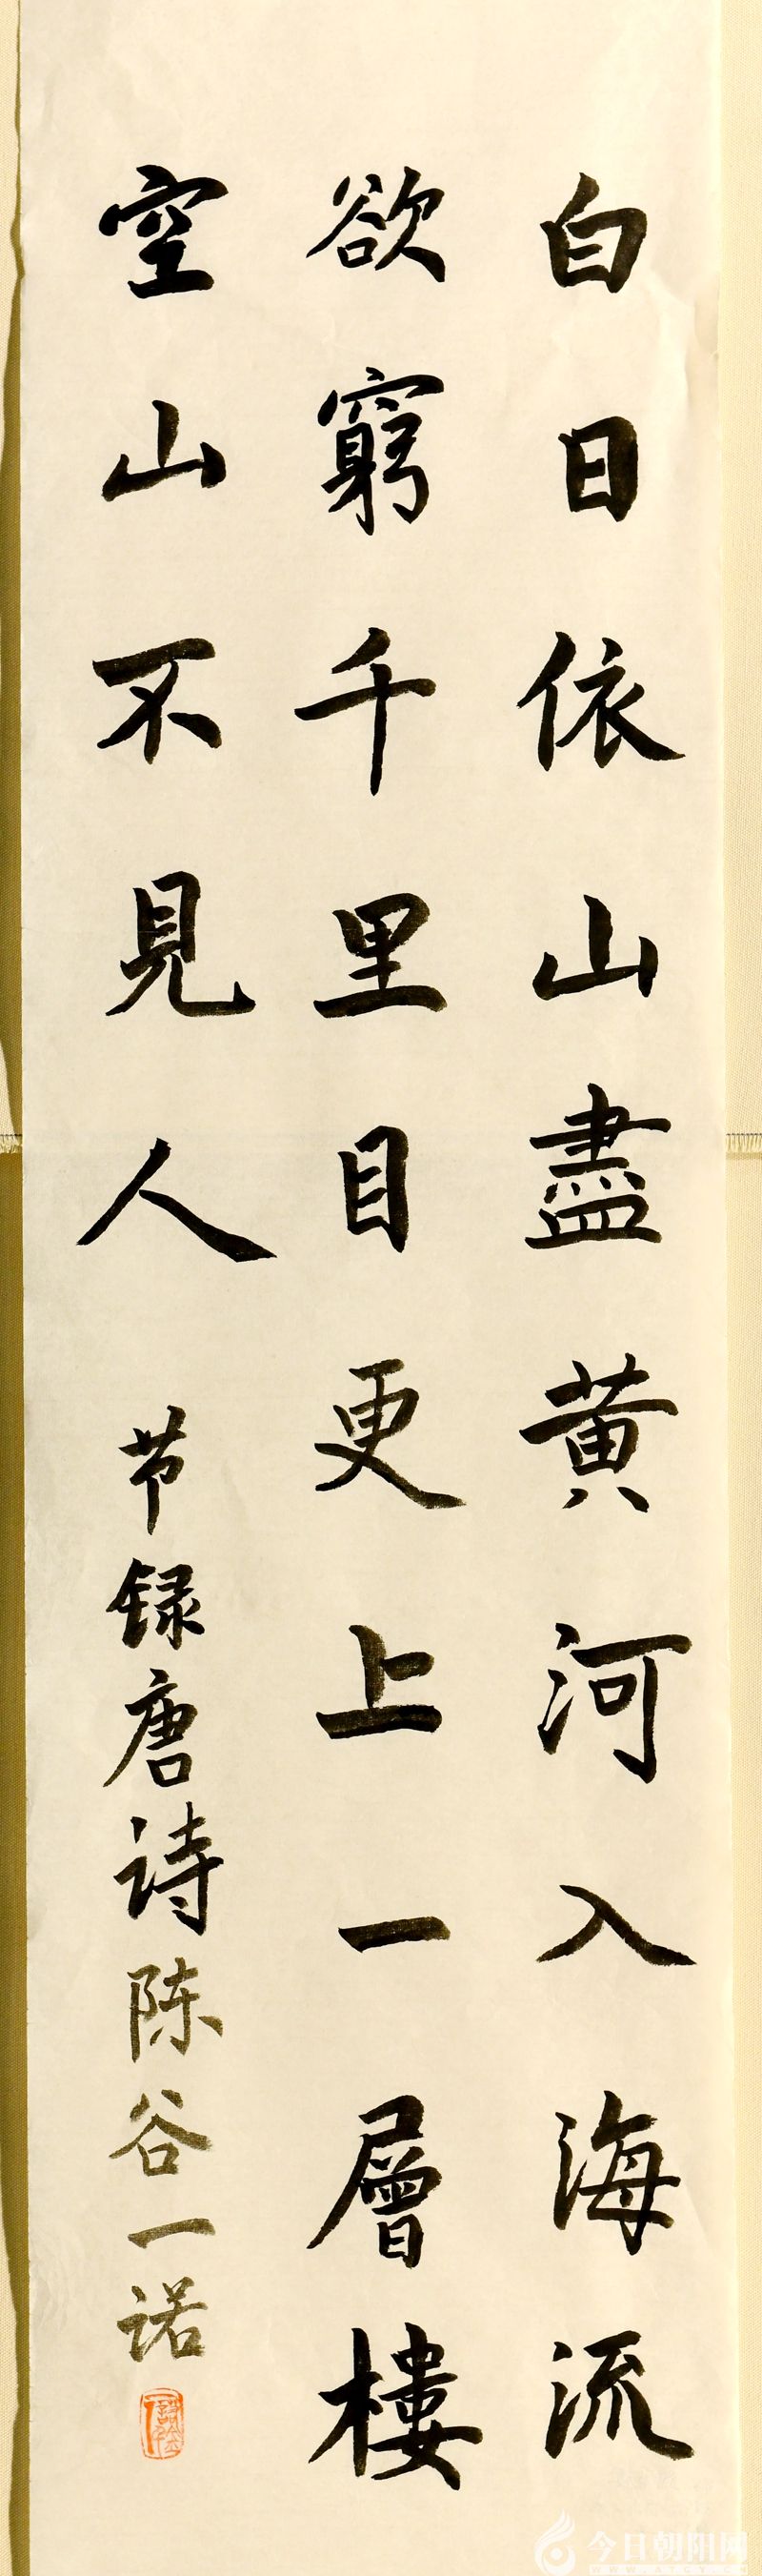 白日依山盡黄河入海流
欲窮千里目更上一層樓
空山不見人 节録唐诗陈谷一诺
今日朝阳网